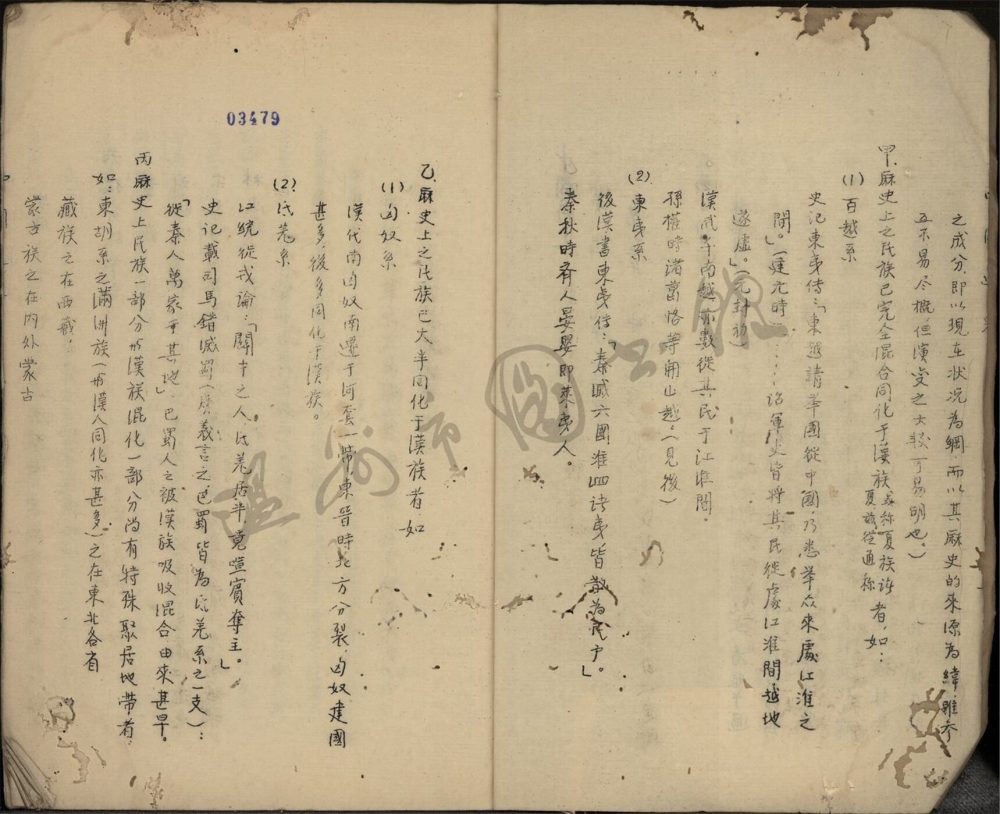 之成分,即以現在狀況為綱而以其厤史的來源為緯,雖參
五不易尽概但演变之大較可易明也。)
甲.厤史上之民族已完全混合同化于漢族或称夏族許夏諸從通称者,如:
(1)百越系
史记東夷传:「東越請举國從中國,乃悉举众來處江淮之
間。」(建元時……诏軍吏皆將其民從處江淮間越地
遂虛。」(元封初)
漢武平南越前數從其民于江淮間.
孫權時諸葛恪等開山越。(見後)
(2)東夷系
後漢書東夷传:「秦滅六國淮四诸夷皆散為民户。」
秦秋時齊人晏嬰即萊夷人。
03479
乙.厤史上之民族已大半同化于漢族者,如
(1)匈奴系
漢代南匈奴南遷于河套一帶東晉時北方分裂,匈奴建國
甚多,後多同化于漢族。
(2)氐羌系
江統從戎論:「關中之人,氐羌居半,竟喧賓奪主。」
史记載司馬錯滅蜀(廣義言之,巴蜀皆為氐羌系之一支):
「從秦人萬家于其地」,巴蜀人之被漢族吸收混合由來甚早。
丙.厤史上民族一部分为漢族混化一部分尚有特殊聚居地帶者.
如:東胡系之滿洲族(为漢人同化亦甚多)之在東北各省
藏族之在西藏,
蒙古族之在內外蒙古
溫州市圖書館